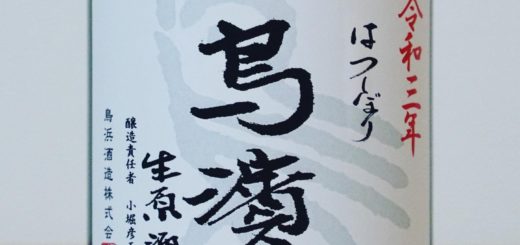 令和三年
はつしぼり
鳥濱
醸造責任者 小堀彦
生原酒
鳥浜酒造株式会